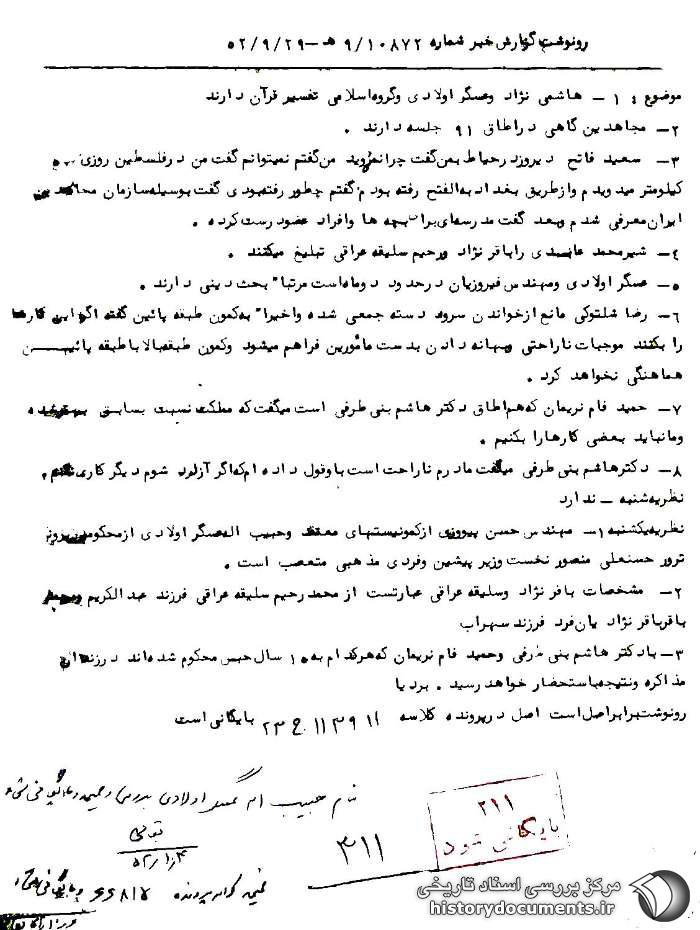 رونوشت گزارش خبر شماره ۹/۱۰۸۷۲ هـ – ۵۲/۹/۲۹
موضوع : ۱ – هاشمی نژاد وعسگر اولادی وگروه اسلامی تفسیر قرآن دارند
۲– مجاهدین گاهی در اطاق ۹۱ جلسه دارند .
۳– سعید فاتح دیروز در حیاط بمن گفت چرا نمیدوید من گفتم نمیتوانم گفت من در فلسطین روزی
کیلومتر میدویدم واز طریق بغداد به الفتح رفته بودم گفتم چطور رفته بودی گفت بوسیله سازمان مجاهدین
ایران معرفی شدم وبعد گفت مدرسه ای برا بچه ها وافراد عضو درست کرده .
۴– شیرمحمد را باقر نژاد ورحیم سلیقه عراقی تبلیغ میکنند .
۵– عسگر اولادی ومهندس فیروزیان در حدود دو ماه است مرتبا" بحث دینی دارند .
۶– رضا شلتوکی مانع از خواندن سرود دسته جمعی شده واخیرا" به کمون طبقه پائین گفته اگر این کارها
را بکنند موجبات ناراحتی وبهانه دادن بدست مأمورین فراهم میشود وکمون طبقه بالا با طبقه پائیـــــن
هماهنگی نخواهد کرد .
۷– حمید فام نریمان که هم اطاق دکتر هاشم بنی طرفی است میگفت که مملکت نسبت بسابق بهتر شده
ومانباید بعضی کارها را بکنیم .
۸– دکتر هاشم بنی طرفی میگفت مادرم ناراحت است باو قول داده ام که اگر آزاد شوم دیگر کاری نکنم.
نظریه شنبه – ندارد
نظریه یکشنبه ۱– مهندس حسن از کمونیستهای معتقد وحبیب اله عسگر اولادی از محکومین پرونده
ترور حسنعلی منصور نخست وزیر پیشین وفردی مذهبی متعصب است .
۲– مشخصات باقر نژاد وسلیقه عراقی عبارتست از محمد رحیم سلیقه عراقی فرزند عبدالکریم
باقر باقر نژاد یان فرد فرزند سهراب
۳– با دکتر هاشم بنی طرفی وحمید فام نریمان که هرکدام به ۱۰ سال حبس محکوم شده اند در زندان
مذاکره ونتیجه باستحضار خواهد رسید . بردیا
رونوشت برابر اصل است اصل در پرونده کلاسه ۱۱ ۳۹ ۱۱ ج ۲۳ بایگانی است
نام حبیب اله عسگر اولادی بررسی وضمیمه و بایگانی شود
۳۱۱
۲۱۱
بایگانی شود
پرونده ۶۶۸۱۷
مرکز بررسی اسناد تاریخی
historydocuments.ir